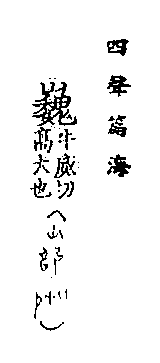 四聲篇海
巍牛威切
高大也
山部